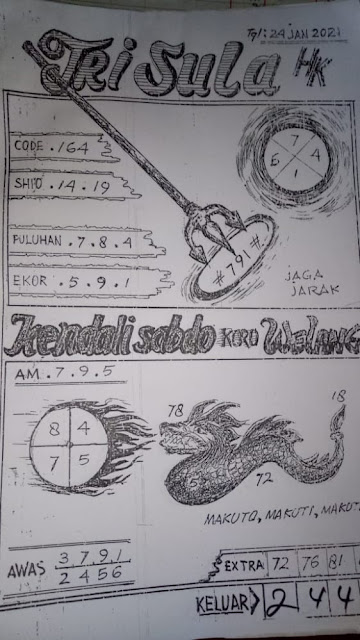 Tgl: 24 JAN 2021
Tri Sula HK
CODE . 164
7
6 4
1
SHIO . 14 . 19
PULUHAN . 7 . 8 . 4
# 791 #
EKOR . 5 . 9 . 1
JAGA
JARAK
Kendali sabdo KARO WELANG
AM . 7 . 9 . 5
18
78
8 4
7 5
5
72
MAKUTO, MAKUTI, MAKUT
AWAS 3 7 9 1
2 4 5 6
EXTRA 72 76 81
KELUAR> 2 4 4